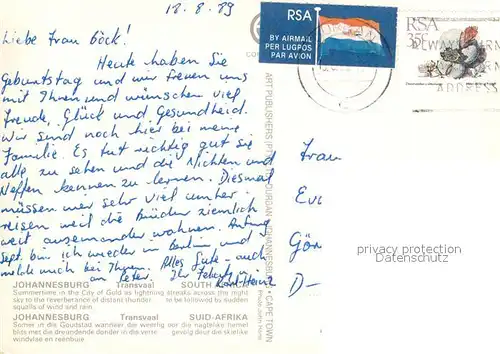 18.8.89
Liebe Frau Göck!
Heute haben Sie
Geburtstag und wir freuen uns
mit Ihnen und wünschen viel
Freude, Glück und Gesundheid.
Wir sind noch hier bei meine
Familie. Es tut richtig gut sie
alle zu sehen und die Nichten und
Neffen kennen zu lernen. Diesmal
müssen wir sehr viel umher
reisen weil die Brüder ziemlich
weit auseinander wohnen. Anfang
Sept. bin ich wieder in Berlin und
melde mich bei Ihnen. Alles Gute - auch
an Peter. Ihr
Karl-Heinz
RSA
BY AIRMAIL
PER LUGPOS
PAR AVION
RSA
35c
ADDRESS
Frau
Gör
D-
privacy protection
Datenschutz
ART PUBLISHERS (PTY) DURBAN JOHANNESBURG CAPE TOWN
JOHANNESBURG Transvaal SOUTH AFRICA
Summertime in the City of Gold as lightning streaks across the night
sky to the reverberance of distant thunder to be followed by sudden
squalls of wind and rain
JOHANNESBURG Transvaal SUID-AFRIKA
Somer in die Goudstad wanneer die weerlig oor die nagtelike hemel
blits met die dreunende donder in die verte gevolg deur die skielike
windvlae en reën